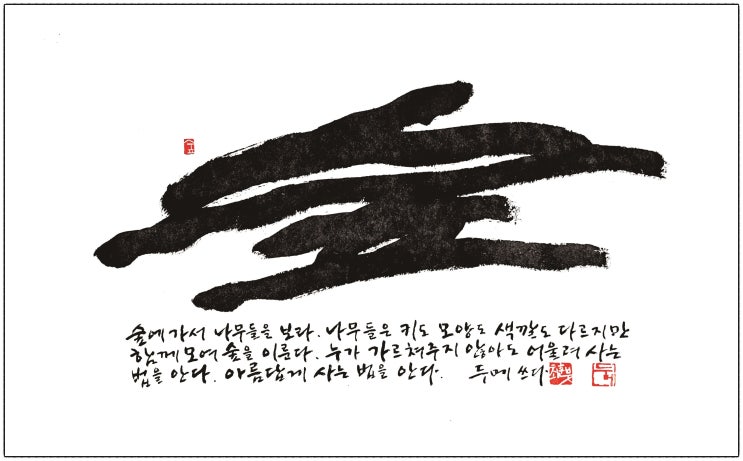 숲
숲에 가서 나무들을 보라. 나무들은 키도 모양도 색깔도 다르지만
함께 모여 숲을 이룬다. 누가 가르쳐주지 않아도 어울려 사는
법을 안다. 아름답게 사는 법을 안다. 두메 쓰다